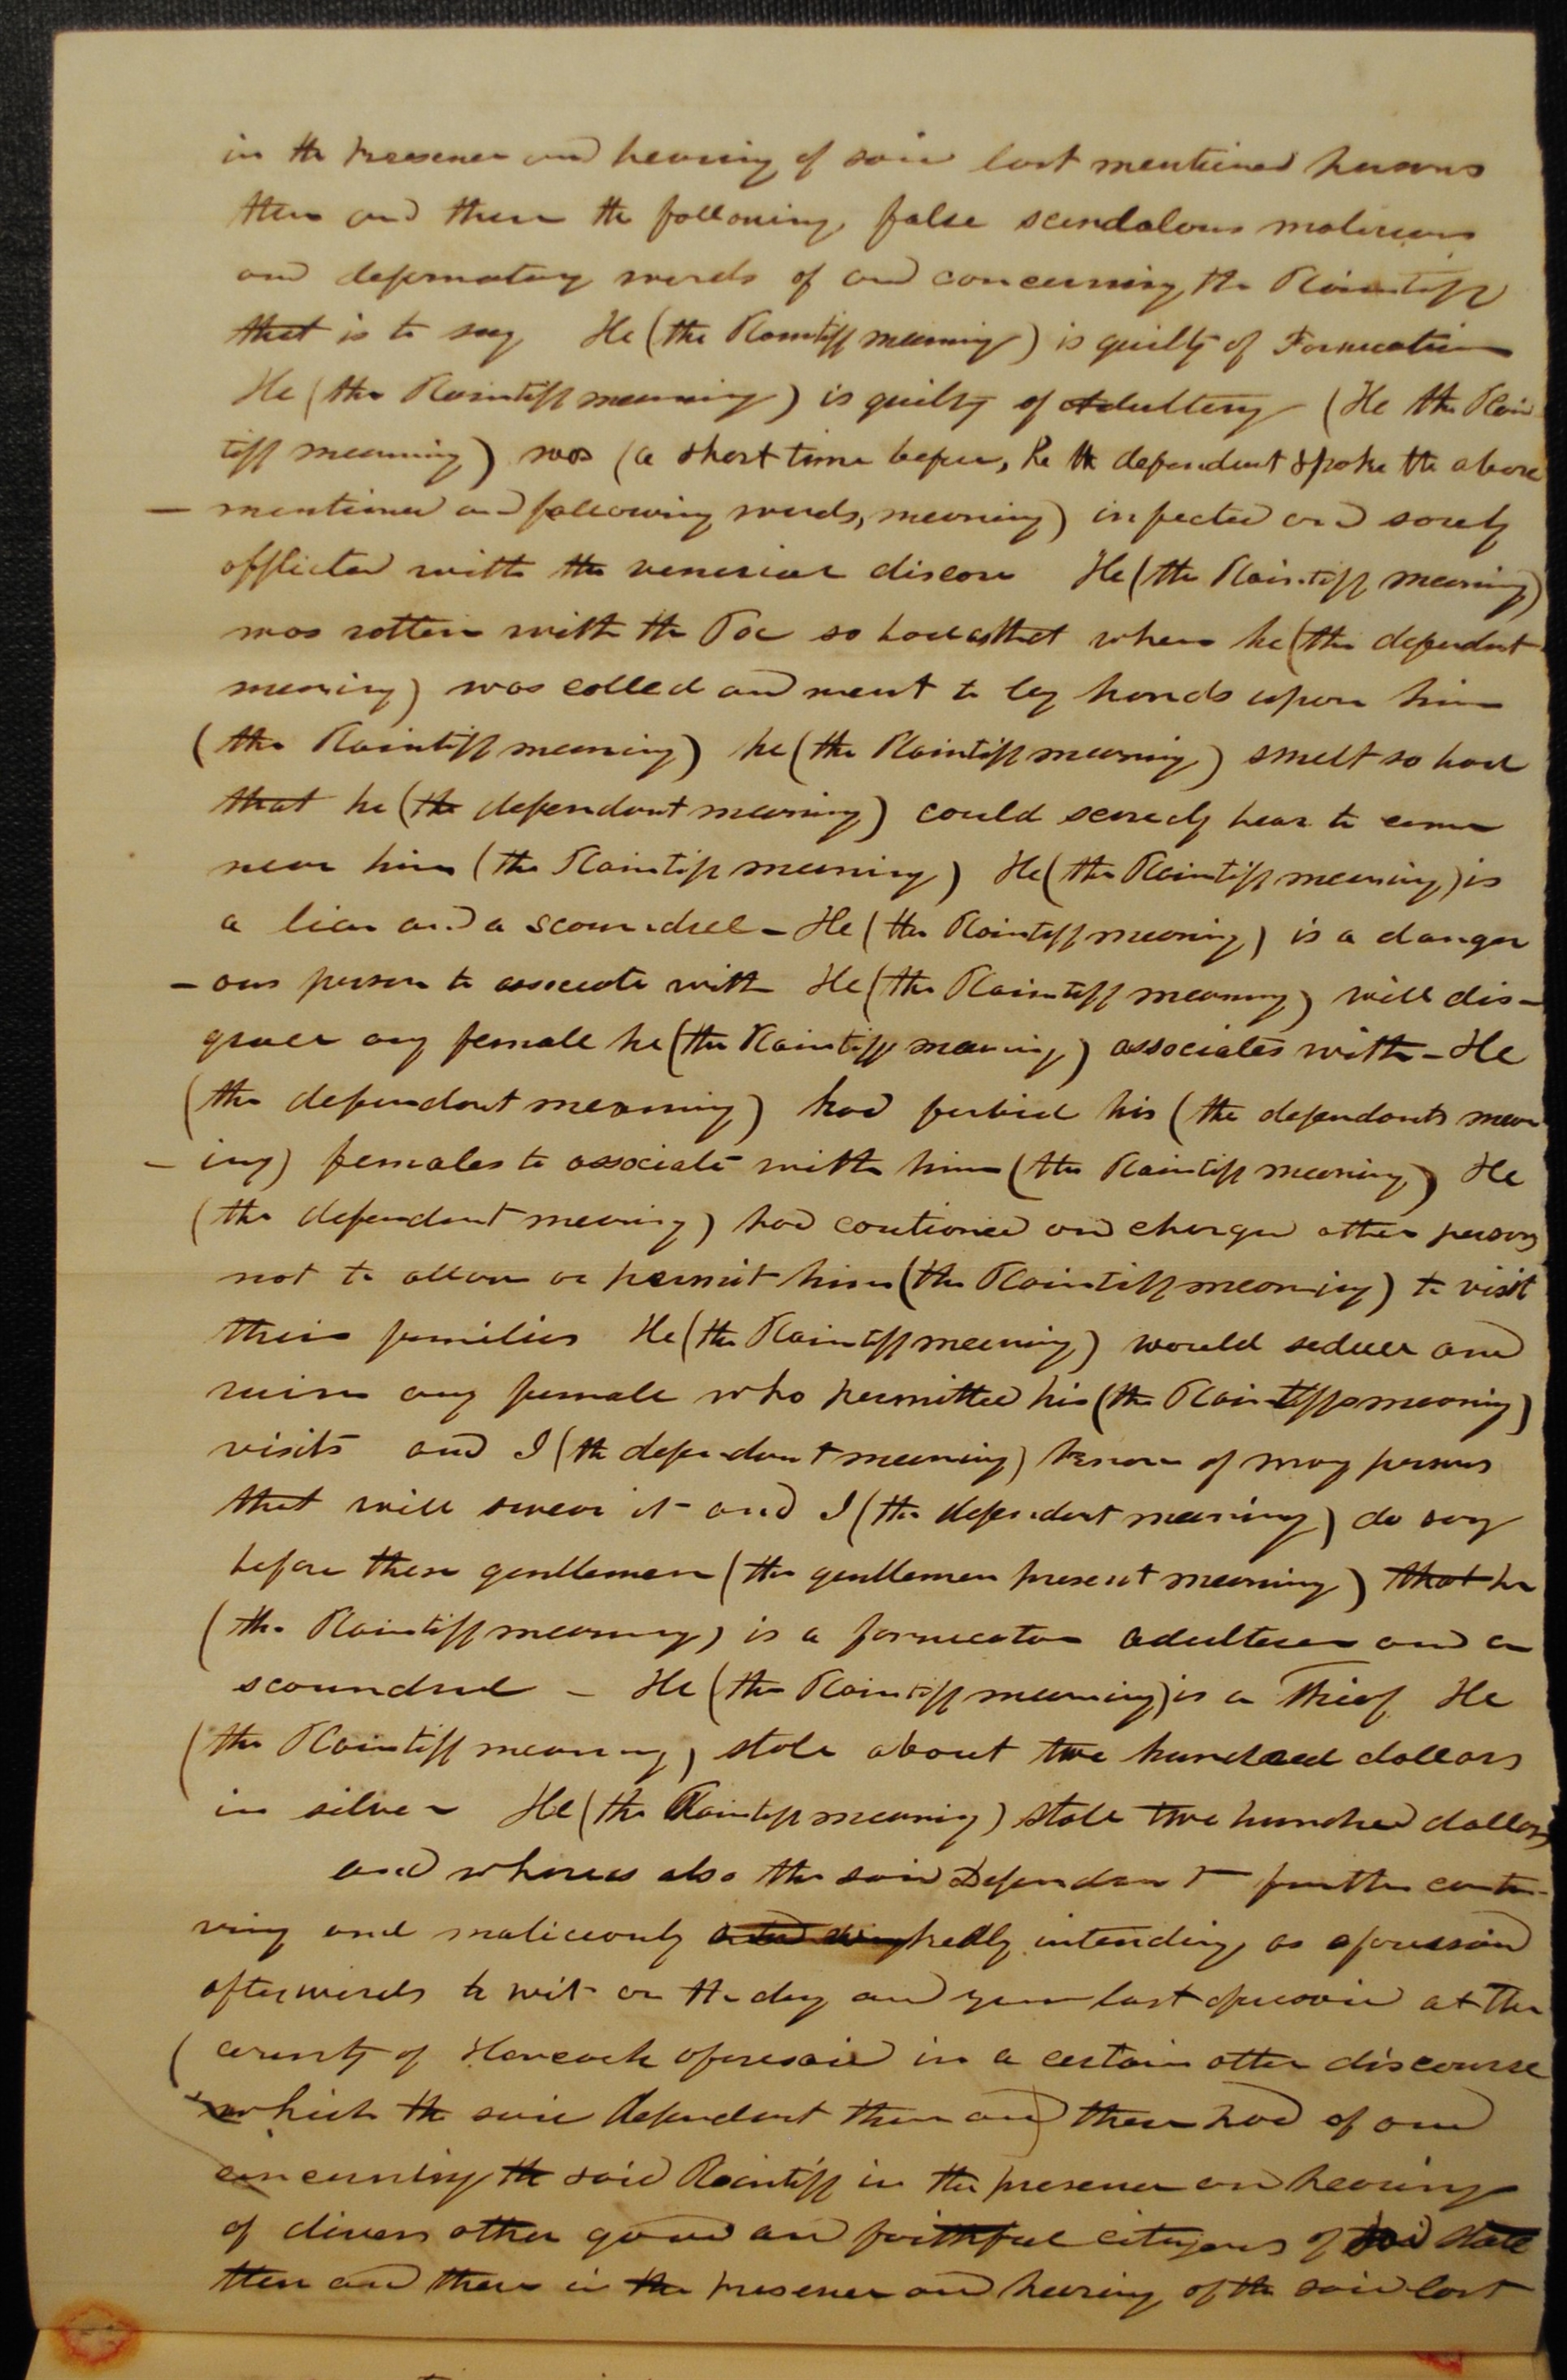 in the presence and hearing of said last mentioned persons
then and there the following, false scandalous malicious
and defamatory words of and concerning, the Plaintiff
that is to say He (the Plaintiff meaning) is guilty of Fornication
He (the Plaintiff meaning) is guilty of Adultery (He the Plain
tiff meaning) was (a short time before, he the defendant spoke the above
— mentioned and following words, meaning) infected and sorely
afflicted with the venerial disease He (the Plaintiff meaning)
was rotten with the Pox so bad as that when he (the defendant
meaning) was called and went to lay hands upon him
(the Plaintiff meaning) he (the Plaintiff meaning) smelt so bad
that he (the defendant meaning) could scarcely bear to come
near him (the Plaintiff meaning) He (the Plaintiff meaning) is
a liar and a scoundrel - He (the Plaintiff meaning) is a danger
- ous person to associate with He (the Plaintiff meaning) will dis-
grace any female he (the Plaintiff meaning) associates with - He
(the defendant meaning) had forbid his (the defendants mean
- ing) females to associate with him (the Plaintiff meaning) He
(the defendant meaning) had cautioned and charged other persons
not to allow or permit him (the Plaintiff meaning) to visit
their families He (the Plaintiff meaning) would seduce and
ruin any female who permitted his (the Plaintiffs meaning)
visits and I (the defendant meaning) know of many persons
that will swear it and I (the defendant meaning) do say
before these gentlemen (the gentlemen present meaning) that he
(the Plaintiff meaning) is a fornicator adulterer and a
scoundrel - He (the Plaintiff meaning) is a Thief He
(the Plaintiff meaning) stole about two hundred dollars
in silver He (the Plaintiff meaning) stole two hundred dollars
and whereas also the said Defendant further contri-
ving and maliciously intending, as aforesaid
afterwards to wit on the day and year last aforesaid at the
county of Hancock aforesaid in a certain other discourse
which the said Defendant then and there had of and
concerning the said Plaintiff in the presence and hearing
of divers other good and faithful citizens of said state
then and there in the presence and hearing of the said last